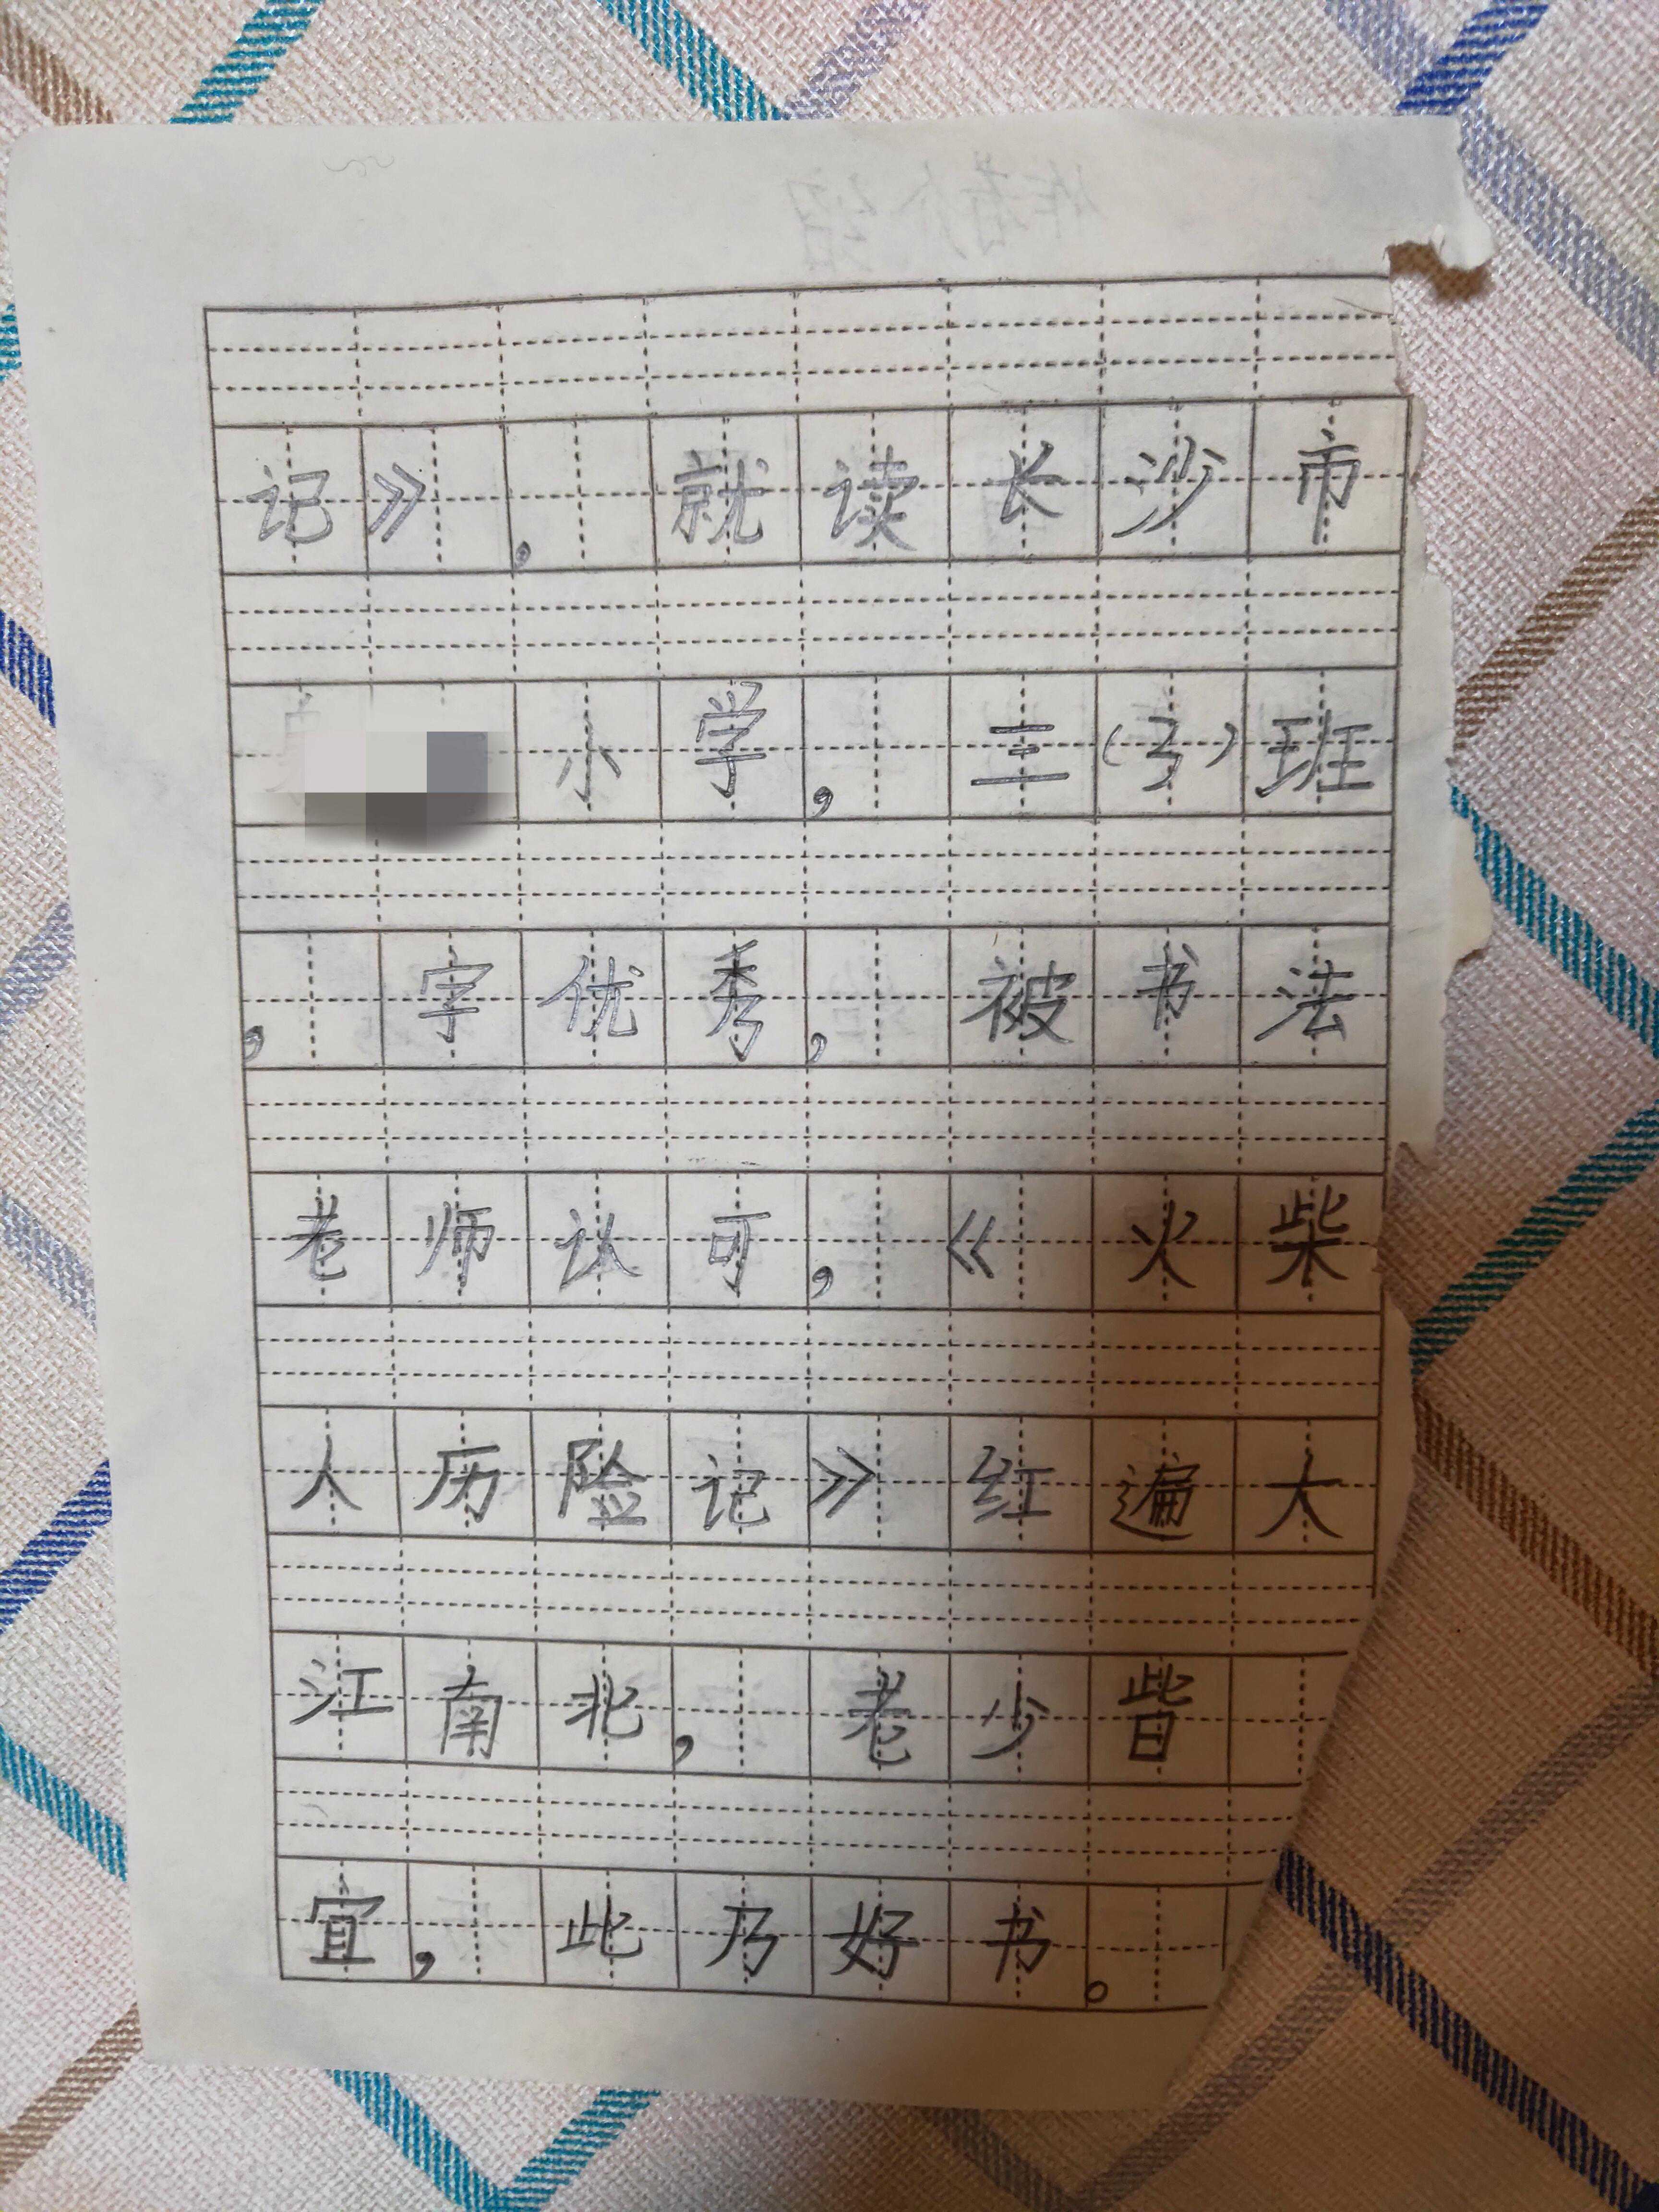 记》，就读长沙市
小学，三（3）班
，字优秀，被书法
老师认可，《火柴
人历险记》红遍大
江南北，老少皆
宜，此乃好书。